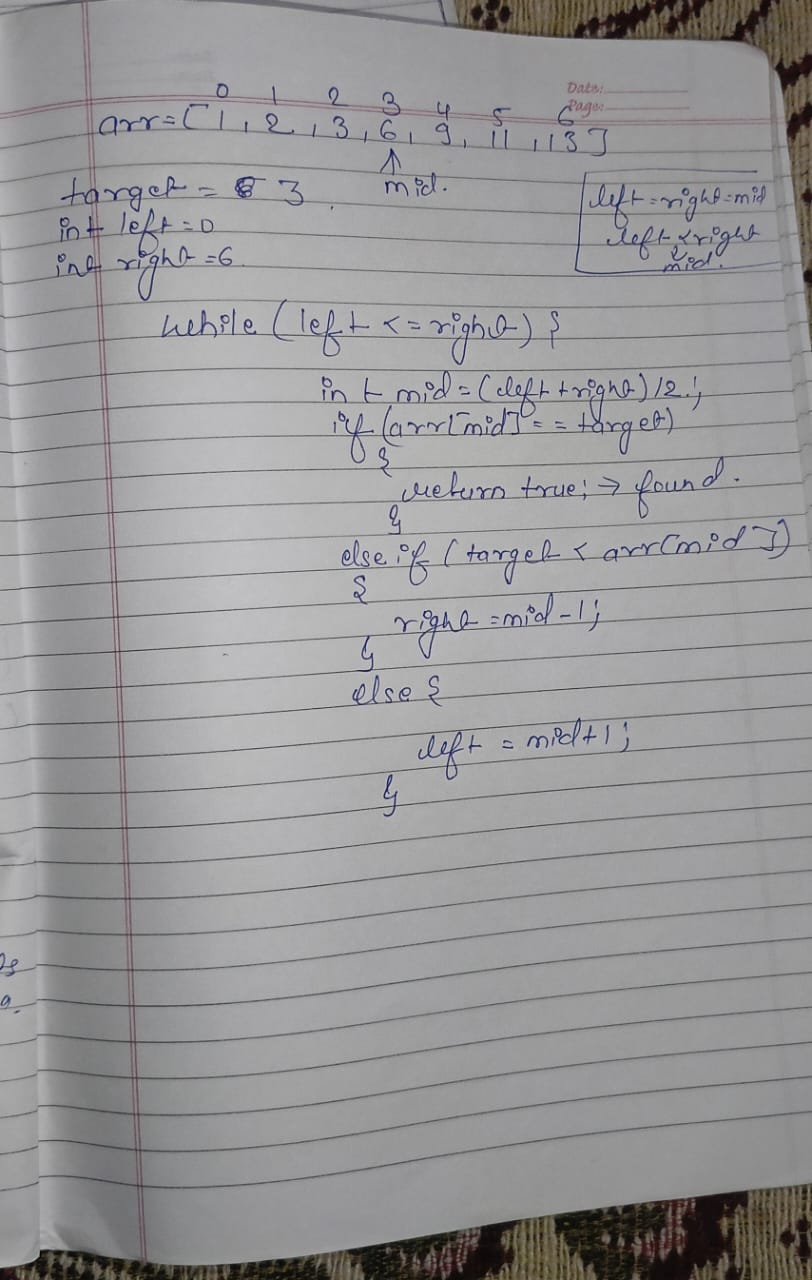 Date:
Page:
0 1 2 3 4 5 6
arr=[1,2,3,6,9,11,13]
mid.
target = 3
int left=0
int right=6
left=right=mid
left<right
mid.
while (left <= right) {
int mid=(left+right)/2;
if (arr[mid]==target)
{
return true; → found.
}
else if (target < arr[mid])
{
right=mid-1;
}
else {
left = mid+1;
}